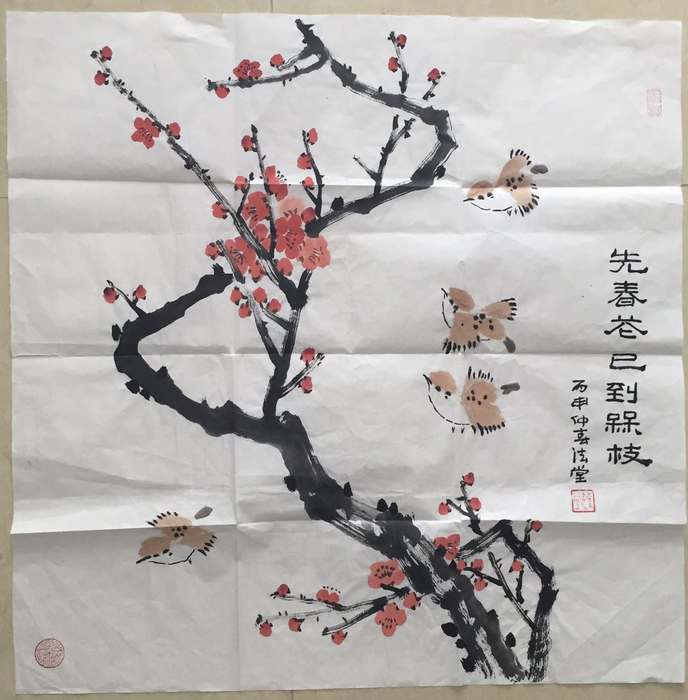 先春花已到槑枝
丙申仲春法堂